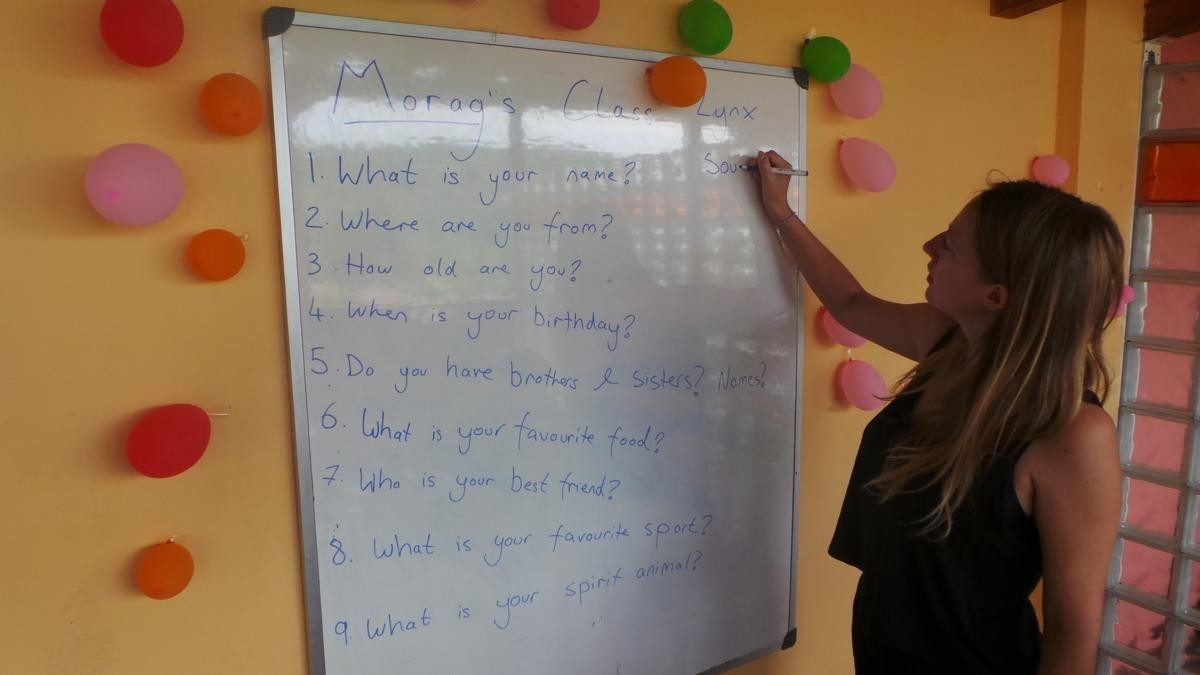 Morag's Class Lynx
1. What is your name? Sou
2. Where are you from?
3. How old are you?
4. When is your birthday?
5. Do you have brothers & sisters? Names?
6. What is your favourite food?
7. Who is your best friend?
8. What is your favourite sport?
9. What is your spirit animal?